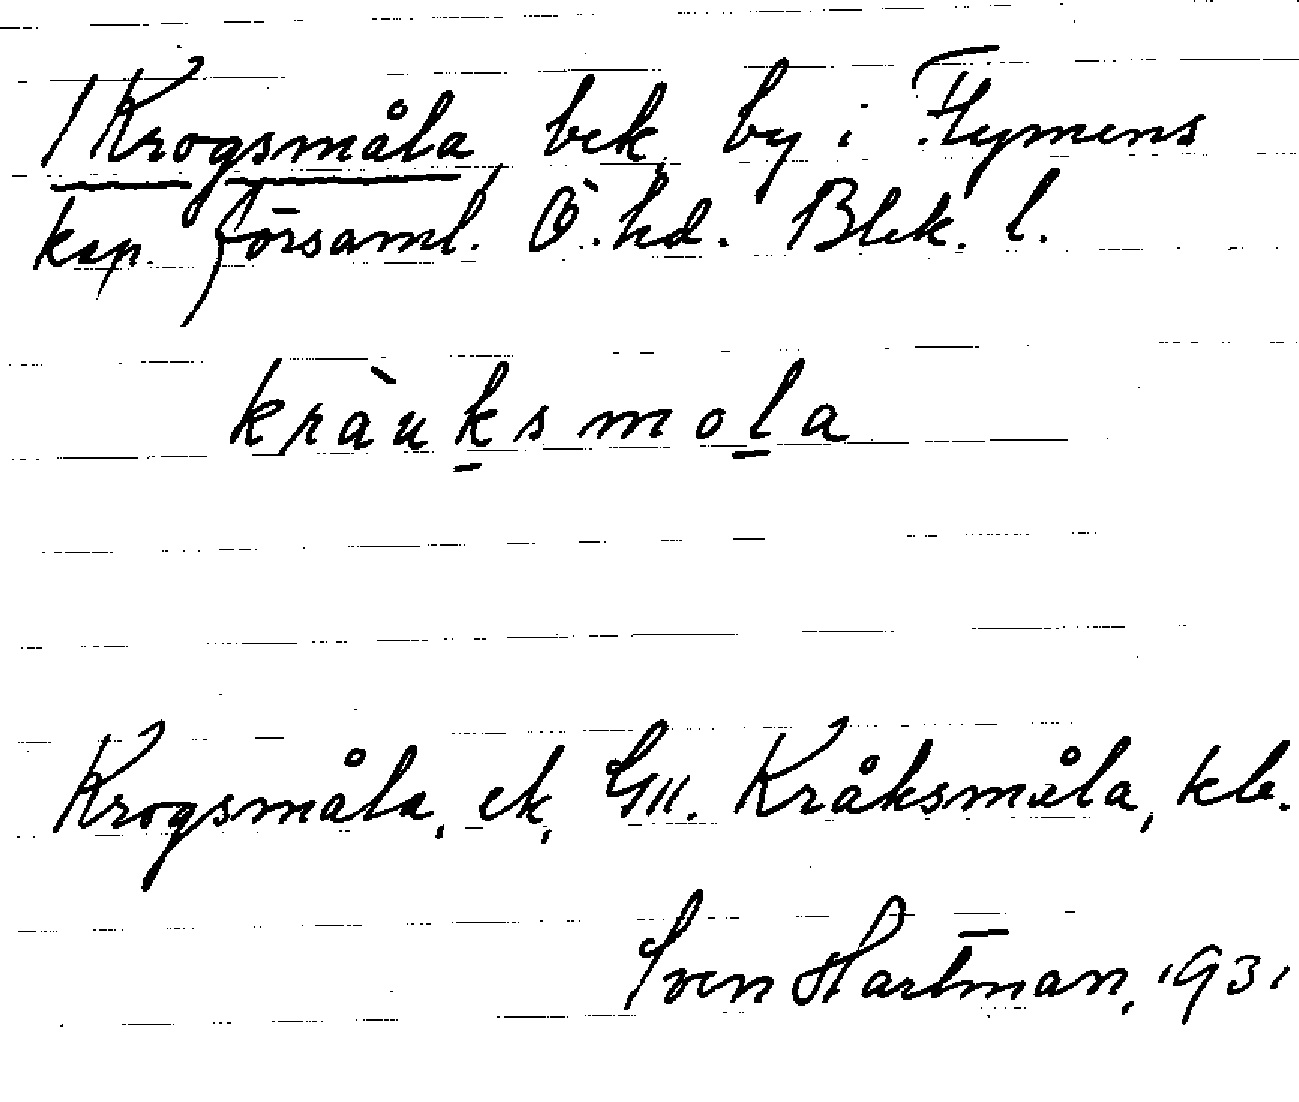 /Krogsmåla bek. by i Flymens
kap. församl. Ö. hd. Blek. l.
kràuksmola
Krogsmåla, ek, GII. Kråksmåla, kb.
Sven Hartman, 1931